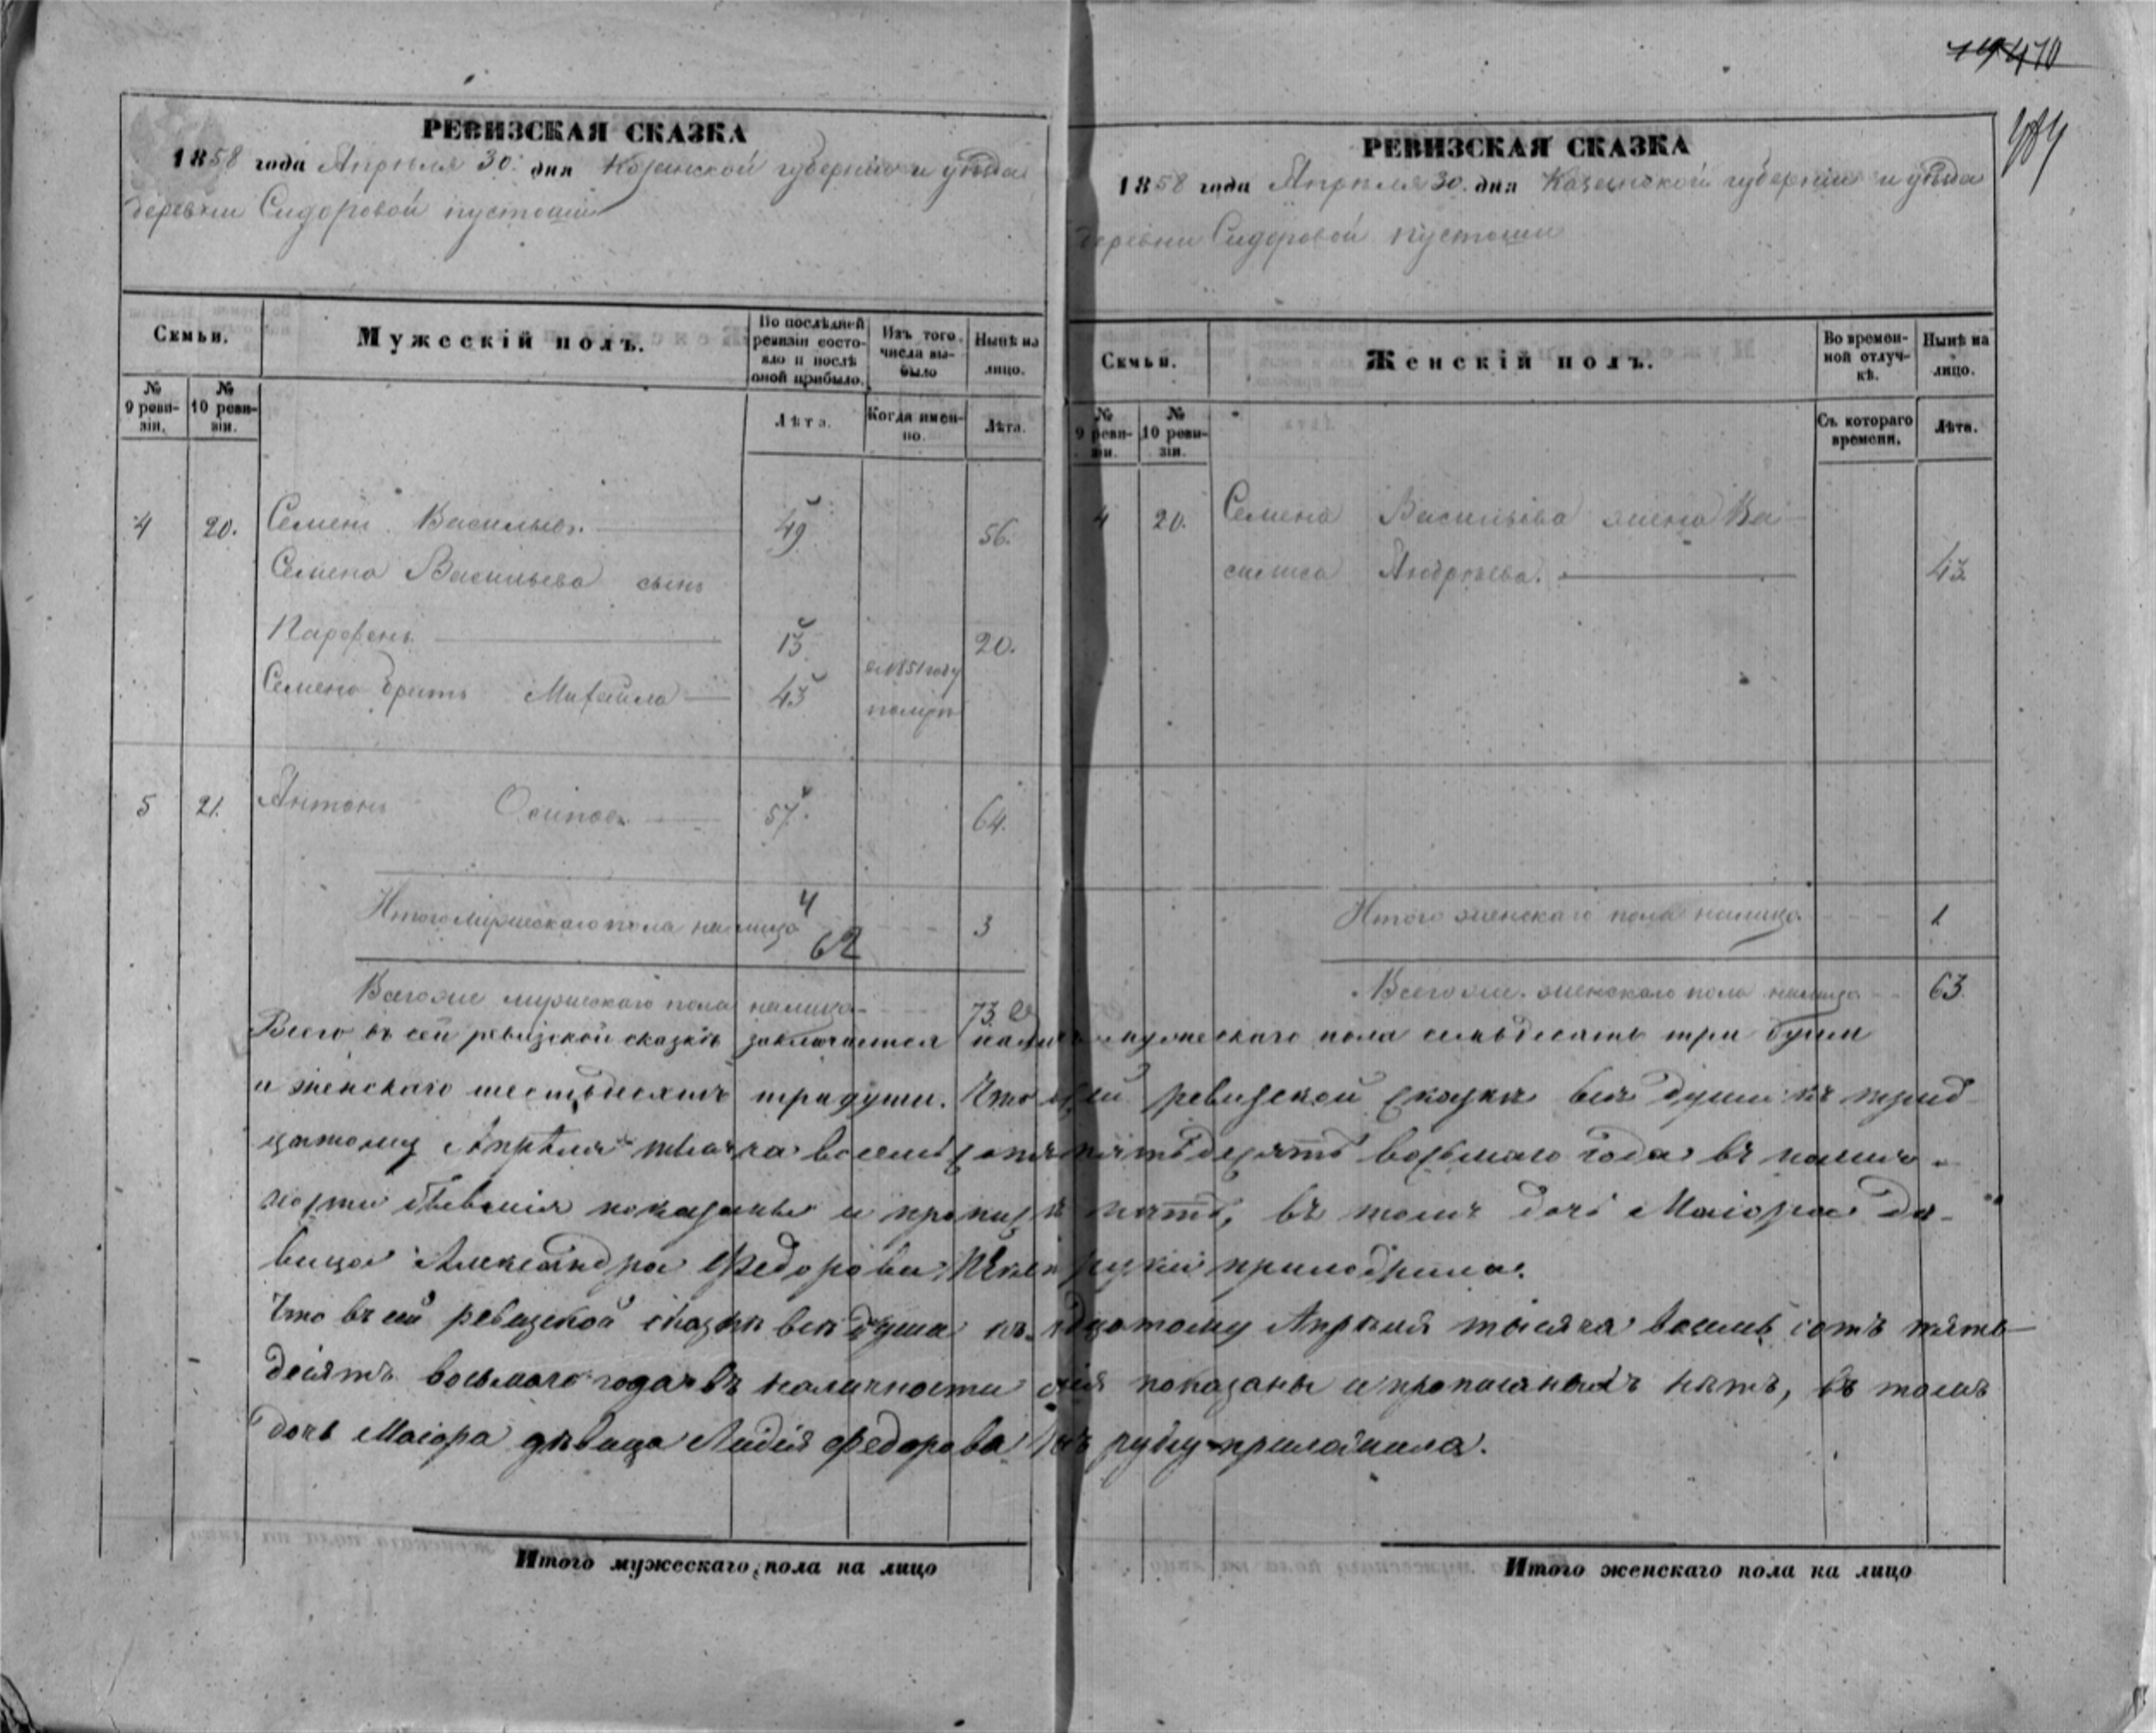 470
484
РЕВИЗСКАЯ СКАЗКА
1858 года Апрѣля 30. дня Казанской губерніи и уѣзда
деревни Сидоровой пустоши
Семьи.
Мужескій полъ.
По послѣдней ревизіи состояло и послѣ оной прибыло.
Изъ того числа выбыло
Нынѣ на лицо.
№ 9 ревизіи.
№ 10 ревизіи.
Лѣта.
Когда именно.
Лѣта.
4 20. Семенъ Васильевъ. 49 56.
Семена Васильева сынъ
Парфенъ 13 20.
Семена братъ Михайла 43 въ 1851 году
помре
5 21. Антонъ Осиповъ 57. 64.
4
Итого мужескаго пола на лицо 3
62
Всего же мужескаго пола налицо 73.
РЕВИЗСКАЯ СКАЗКА
1858 года Апрѣля 30. дня Казанской губерніи и уѣзда
деревни Сидоровой пустоши
Семьи.
Женскій полъ.
Во временной отлучкѣ.
Нынѣ на лицо.
№ 9 ревизіи.
№ 10 ревизіи.
Съ котораго времени.
Лѣта.
4 20. Семена Васильева жена Ва-
силиса Андреева. 43
Итого женскаго пола налицо 1
Всего же женскаго пола налицо 63.
Всего въ сей ревизской сказкѣ заключается мужескаго пола семьдесятъ три души
и женскаго шестьдесятъ три души. Что въ сей ревизской сказкѣ всѣ души къ трид-
цатому Апрѣля тысяча восемьсотъ пятьдесятъ восьмаго года въ налич-
ности показаны и нѣтъ, въ томъ дочь Маіора дѣ-
вица Александра Федорова руку приложила.
Что въ сей ревизской сказкѣ всѣ души Апрѣля тысяча восемь сотъ пять-
десятъ восьмаго года въ наличности показаны и прописныхъ нѣтъ, въ томъ
дочь Маіора дѣвица Лидія Федорова руку приложила.
Итого мужескаго пола на лицо
Итого женскаго пола на лицо